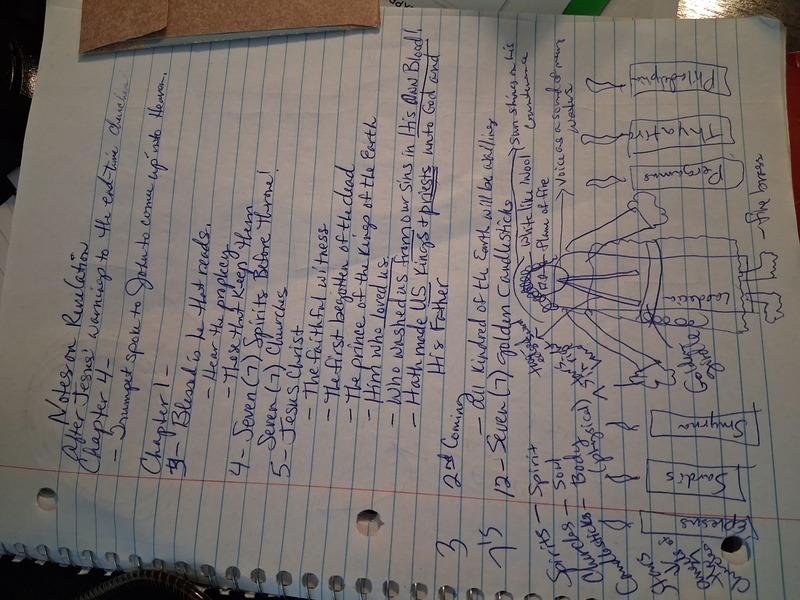 Notes on Revelation
After Jesus' warnings to the end-time churches
Chapter 4-
- Trumpet spoke to John to come up into Heaven.
Chapter 1-
3- Blessed is he that reads.
- Hear the prophecy
- Those that keep them
4- Seven (7) Spirits Before Throne!
- Seven (7) Churches
5- Jesus Christ
- The faithful witness
- The first begotten of the dead
- The prince of the Kings of the Earth
- Him who loved us
- Who washed us from our sins in His OWN Blood!
- Hath made US Kings & priests unto God and
His Father
2nd Coming
- All Kindred of the Earth will be wailing
12- Seven (7) Golden Candlesticks
Sun shines in his
countenance
Spirits - Spirit
White like Wool
Flame of fire
Churches - Soul
Voice as a sound of many
waters
Candlesticks - Body
(physical)
Ephesus
Sardis
Smyrna
Golden
Girdle
Laodocia
Pergamos
Thyatira
Philadelphia
- Fine brass
Stars